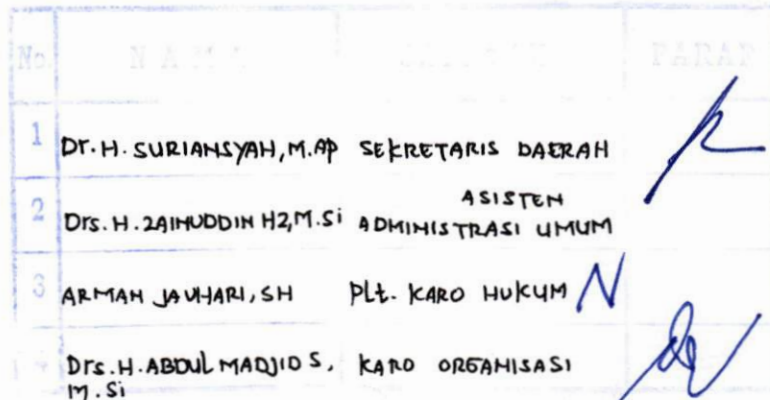 No. NAMA JABATAN PARAF
1 Dr. H. SURIANSYAH, M.AP SEKRETARIS DAERAH
2 Drs. H. ZAINUDDIN HZ, M.Si ASISTEN
ADMINISTRASI UMUM
3 ARMAN JAUHARI, SH PLt. KARO HUKUM
4 Drs. H. ABDUL MADJID S, KARO ORGANISASI
M. Si